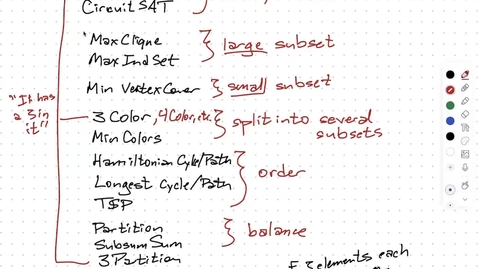 Circuit SAT
"Max Clique
Max Ind Set
large subset
Min Vertex Cover
small subset
"It has
a 3 in
it"
3 Color, 4 Color, etc.
Min Colors
split into several
subsets
Hamiltonian Cycle/Path
Longest Cycle/Path
TSP
order
Partition
SubsumSum
3 Partition
balance
3 elements each